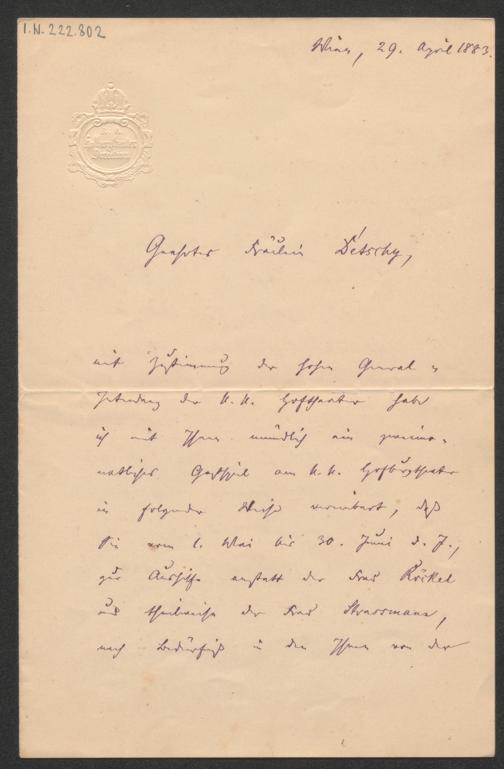 I.N. 222.802
Wien, 29. April 1883.
Geehrtes Fräulein Détschy,
mit Zustimmung der hohen General-
Intendanz der k.k. Hoftheater habe
ich mit Ihnen mündlich ein zweimo-
natliches Gastspiel am k.k. Hofburgtheater
in folgender Weise vereinbart, daß
Sie vom 1. Mai bis 30. Juni d. J.,
zur Aushilfe anstatt der Frau Röckel
und theilweise der Frau Strassmann,
nach Bedürfniß in den Ihnen von der